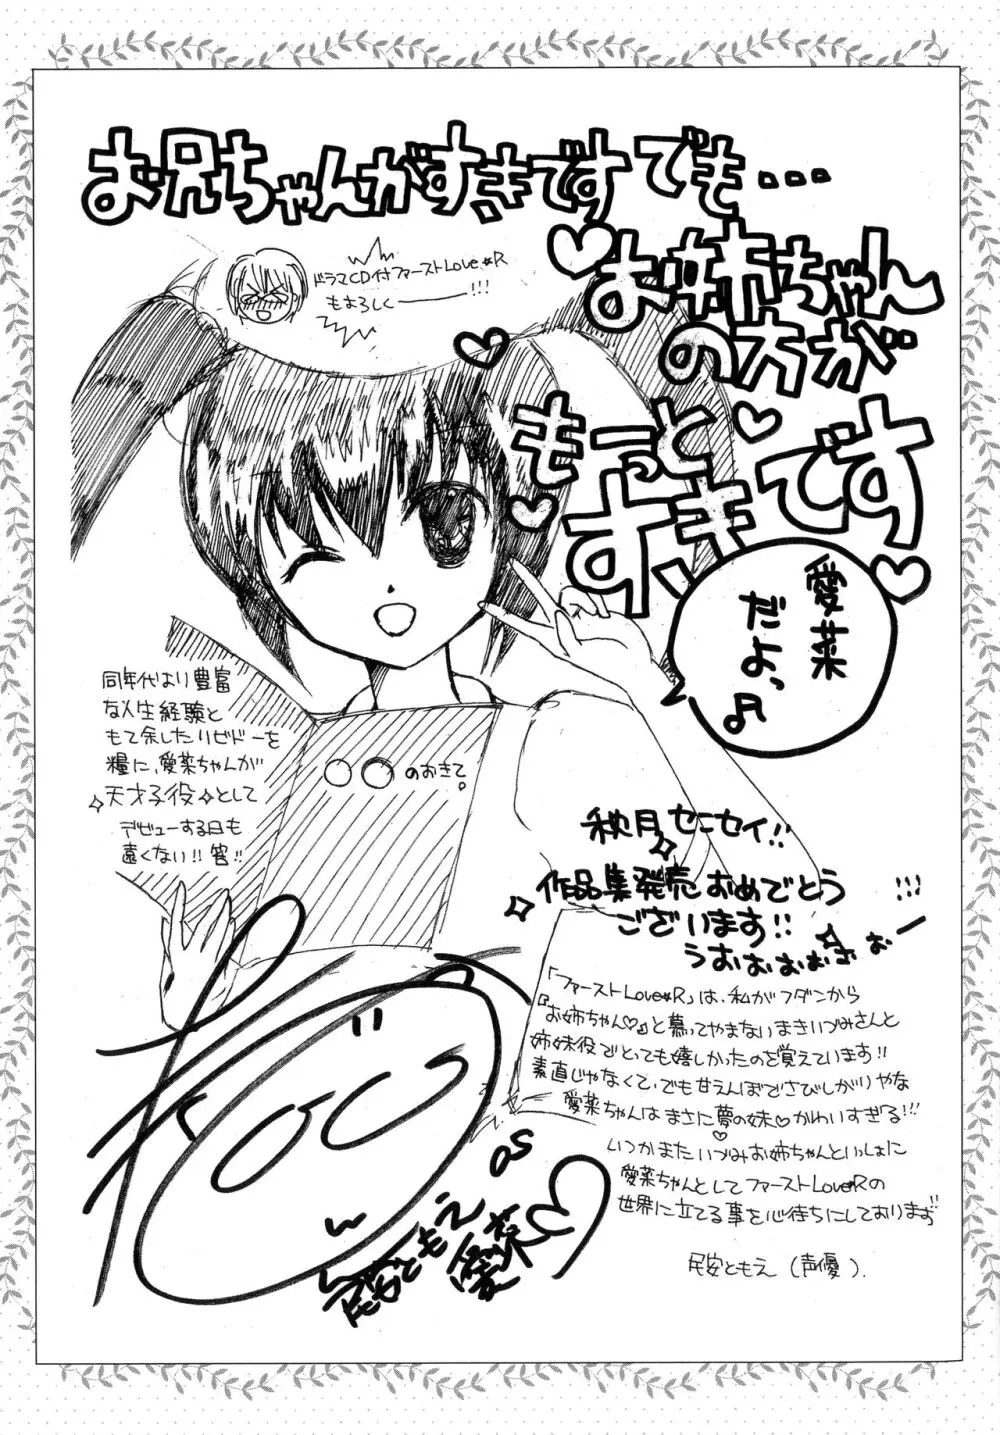 お兄ちゃんがすきですでも...
お姉ちゃん
の方が
もーっと
すきです
ドラマCD付ファーストLove★R
もよろしくー!!!
愛菜
だよっ♪
同年代より豊富
な人生経験と
もて余したリビドーを
糧に、愛菜ちゃんが
天才子役として
デビューする日も
遠くない!!筈!!
○○のおきて。
秋月センセイ!!
作品集発売おめでとう
ございます!!
うおおぉぉぉぉー!!!
「ファーストLove★R」は、私がフダンから
『お姉ちゃん♡』と慕ってやまないまきいづみさんと
姉妹役でとっても嬉しかったのを覚えています!!
素直じゃなくて、でも甘えんぼでさびしがりやな
愛菜ちゃんはまさに夢の妹♡かわいすぎる!!!
いつかまたいづみお姉ちゃんといっしょに
愛菜ちゃんとしてファーストLove★Rの
世界に立てる事を心待ちにしております!!
民安ともえ(声優).
民安ともえ as
愛菜